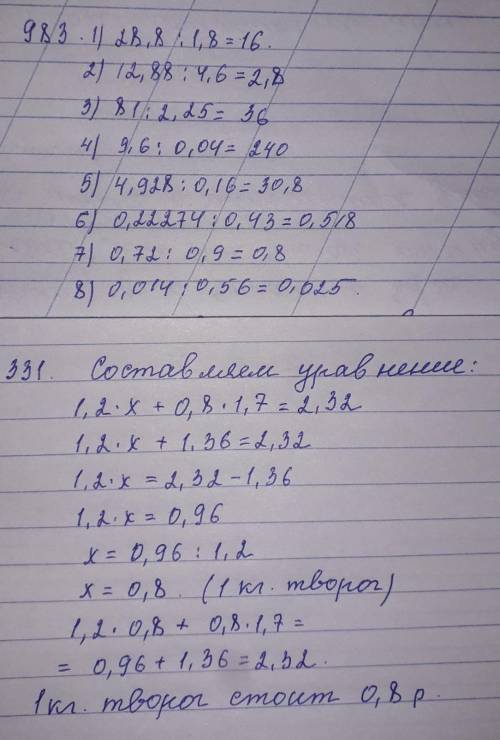 983. 1) 28,8 : 1,8 = 16.
2) 12,88 : 4,6 = 2,8
3) 81 : 2,25 = 36
4) 9,6 : 0,04 = 240
5) 4,928 : 0,16 = 30,8
6) 0,22274 : 0,43 = 0,518
7) 0,72 : 0,9 = 0,8
8) 0,014 : 0,56 = 0,025.
331. Составляем уравнение:
1,2 · x + 0,8 · 1,7 = 2,32
1,2 · x + 1,36 = 2,32
1,2 · x = 2,32 - 1,36
1,2 · x = 0,96
x = 0,96 : 1,2
x = 0,8. (1 кг. творог)
1,2 · 0,8 + 0,8 · 1,7 =
= 0,96 + 1,36 = 2,32.
1 кг. творог стоит 0,8 р.